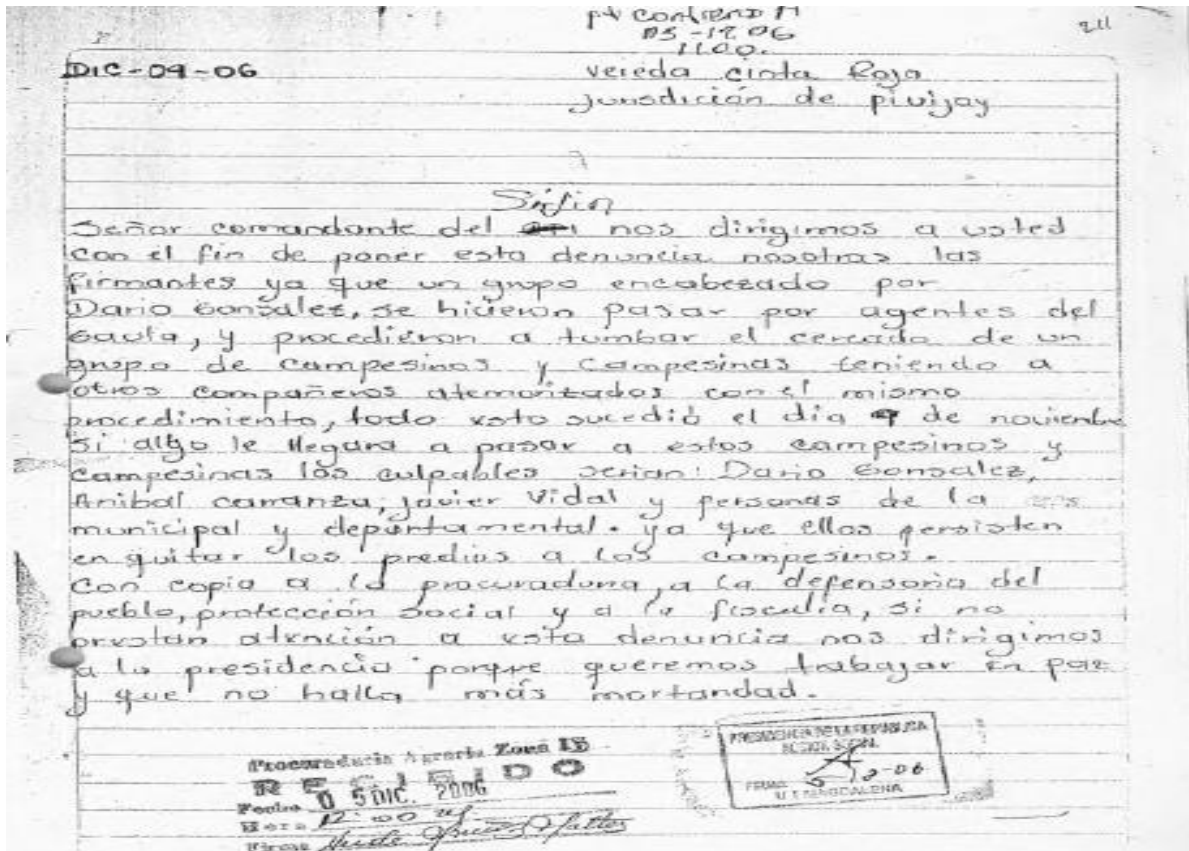 05-12-06
1100.
211
DIC-04-06
vereda cinta Roja
jurisdición de pivijay
Señor comandante del nos dirigimos a usted
con el fin de poner esta denuncia nosotras las
firmantes ya que un grupo encabezado por
Dario Gonsalez, se hicieron pasar por agentes del
Gaula, y procedieron a tumbar el cercado de un
grupo de campesinos y campesinas teniendo a
otros compañeros atemorizados con el mismo
procedimiento, todo esto sucedió el día 9 de noviembre
si algo le llegara a pasar a estos campesinos y
campesinas los culpables serian: Dario Gonsalez,
Anibal carranza, javier Vidal y personas de la
municipal y departamental. ya que ellos persisten
en quitar los predios a los campesinos.
con copia a la procuraduria, a la defensoria del
pueblo, protección social y a la fiscalia, si no
prestan atención a esta denuncia nos dirigimos
a la presidencia porque queremos trabajar en paz
y que no halla más mortandad.
Procuraduria Agraria Zona
RECIBIDO
Fecha 05 DIC. 2006
Hora 12:00
Firma
PRESIDENCIA DE LA REPUBLICA
ACCION SOCIAL
FECHA
U.T. MAGDALENA